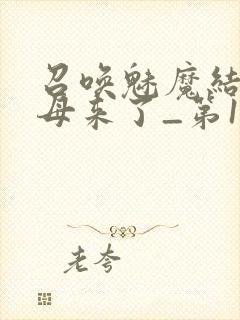 召唤魅魔结
母来了_第1
老夸